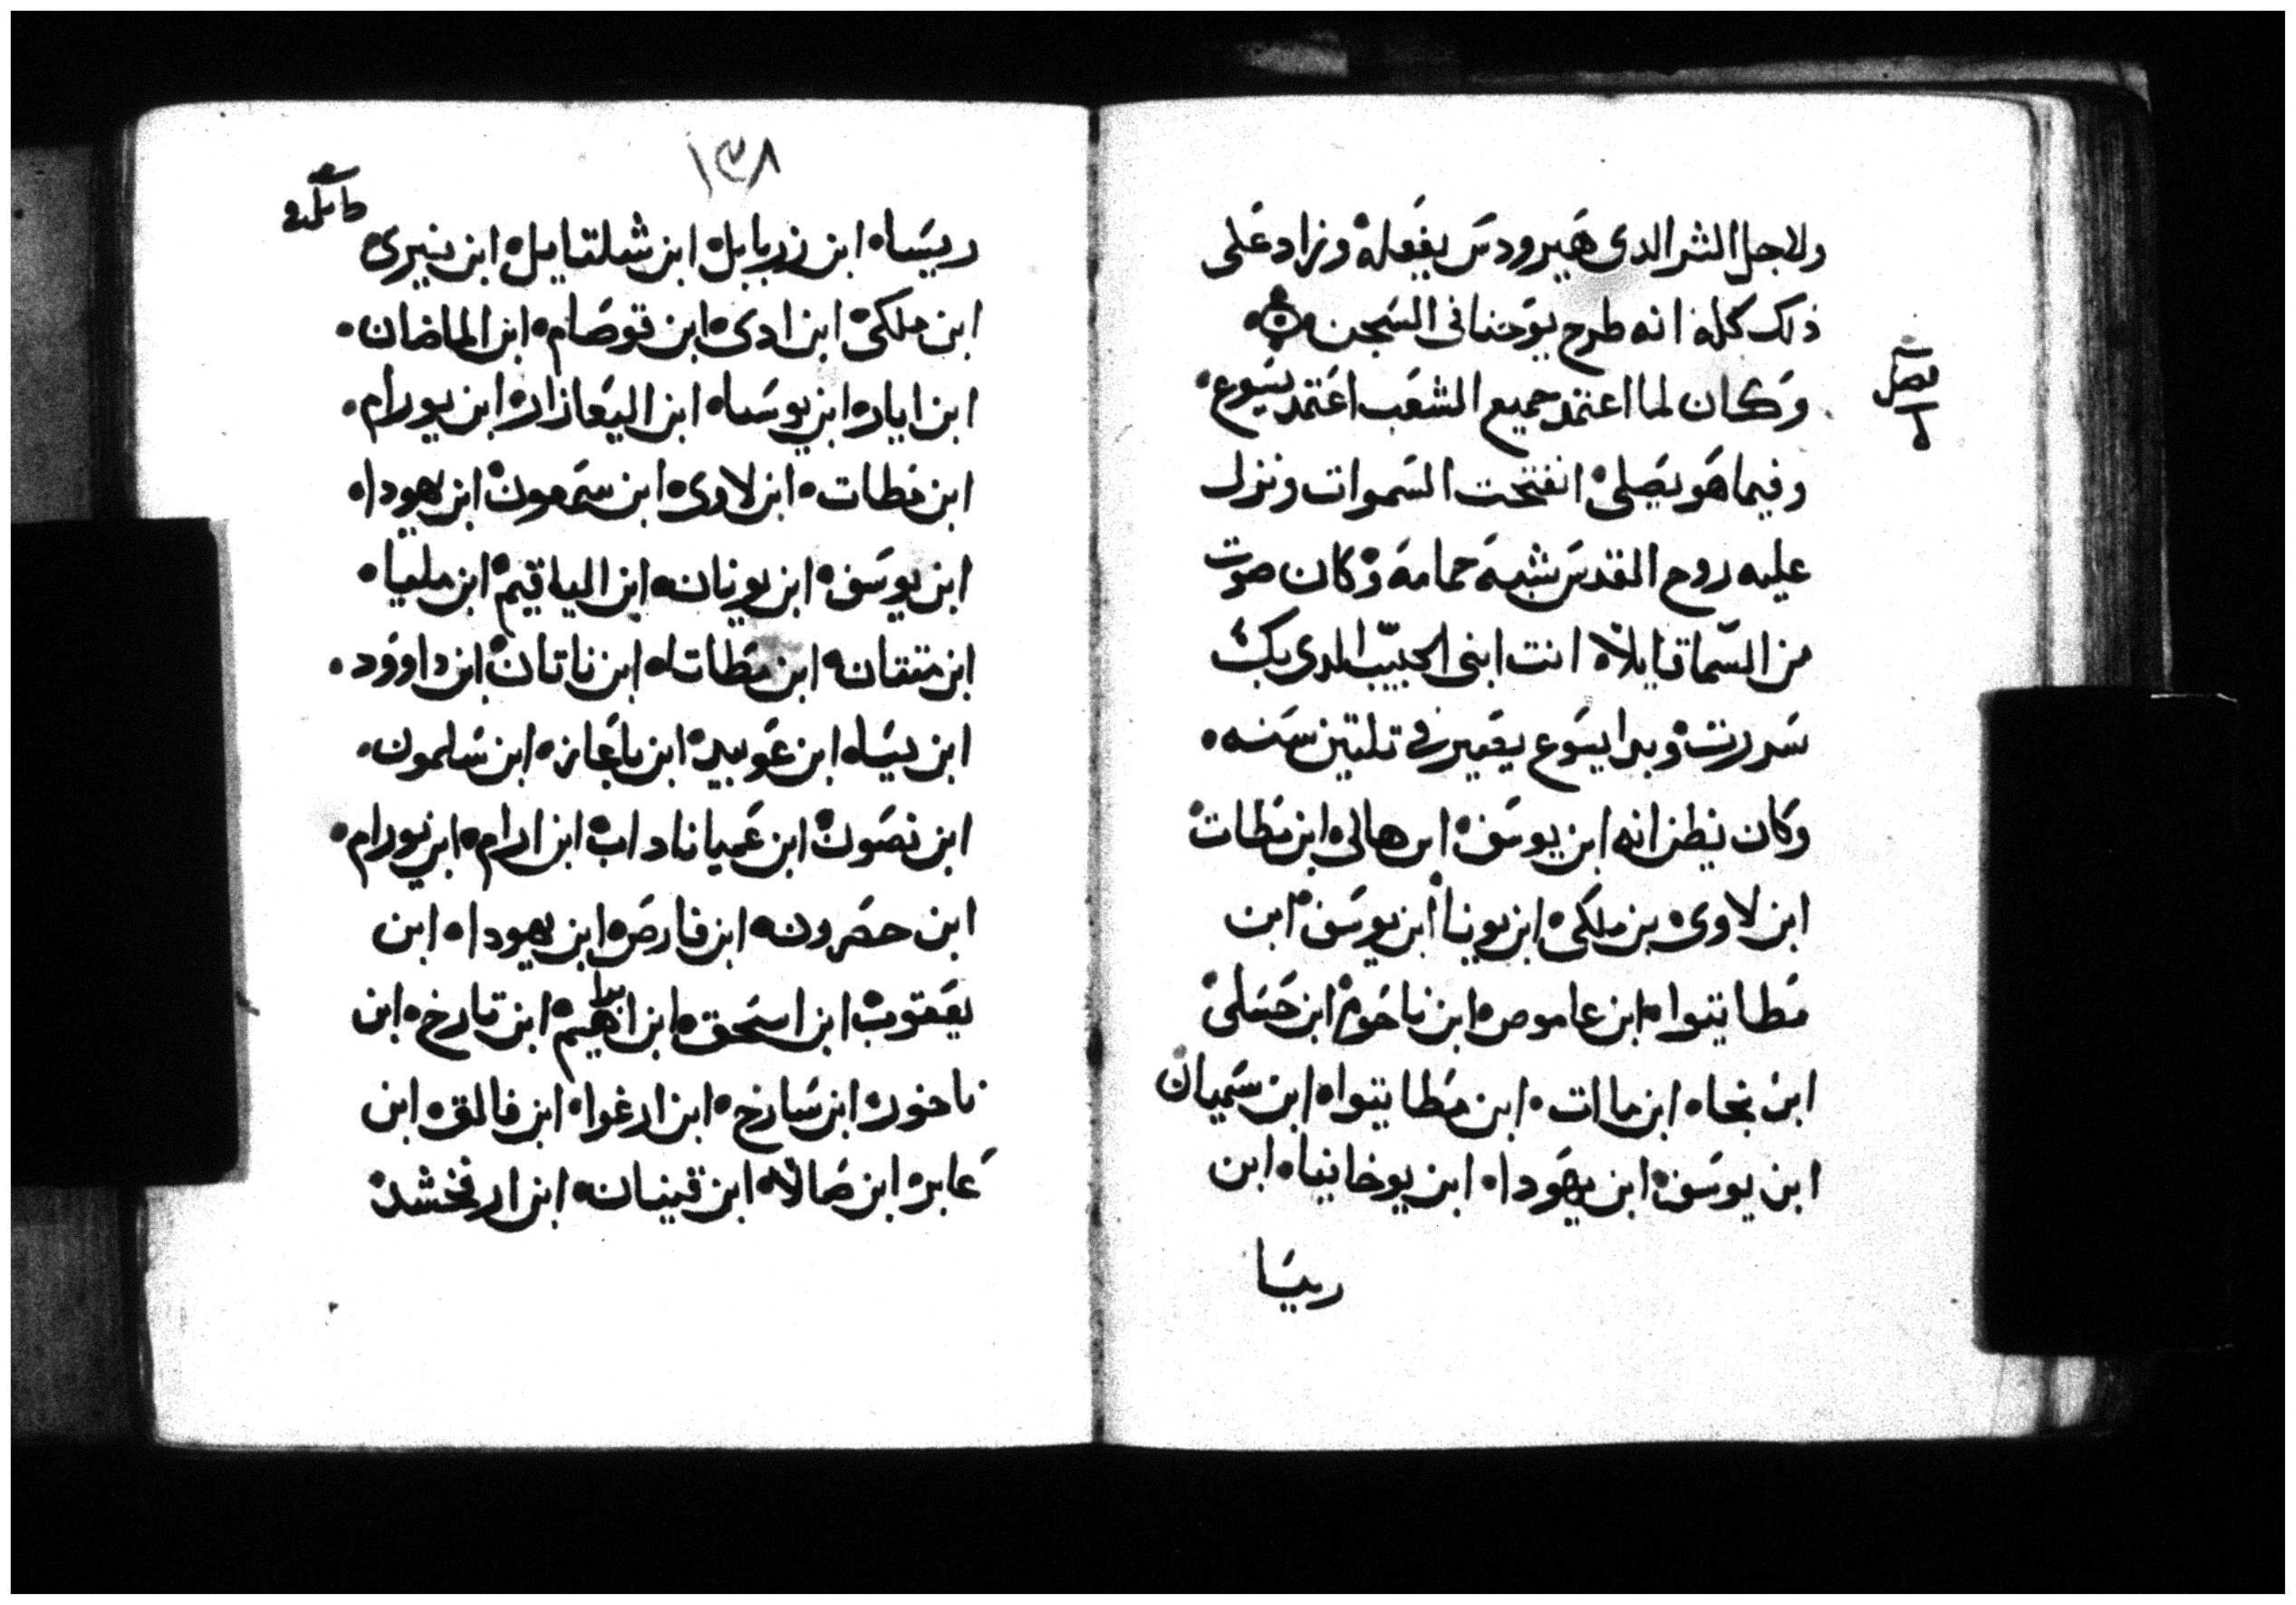 ولاجل الشر الدى هيرودس يفعله وزاد على
ذلك كله انه طرح يوحنا فى السجن
فصل
وكان لما اعتمد جميع الشعب اعتمد يسوع
وفيما هو يصلى انفتحت السموات ونزل
عليه روح القدس شبه حمامه وكان صوت
من السما قايلاً انت ابنى الحبيب الدى بك
سررت وبدا يسوع يصير فى تلتين سنه
وكان يظن انه ابن يوسف ابن هالى ابن مطات
ابن لاوى بن ملكى ابن يونا ابن يوسف ابن
مطاتيوا ابن عاموص ابن ناحوم ابن حسلى
ابن نجا ابن ماات ابن مطاتيوا ابن سميان
ابن يوسف ابن يهودا ابن يوخانيا ابن
ريسا
١٣٨
ريسا ابن زربابل ابن شلتايل ابن نيرى
ابن ملكى ابن ادى ابن قوصام ابن الماضان
ابن اياره ابن يوسا ابن اليعازار ابن يورام
ابن مطات ابن لاوى ابن سمعون ابن يهودا
ابن يوسف ابن يونان ابن الياقيم ابن مليا
ابن متتان ابن مطاتا ابن ناتان ابن داوود
ابن يسا ابن عوبيد ابن باعاز ابن سلمون
ابن نصون ابن عميناداب ابن ارام ابن يورام
ابن حصرون ابن فارص ابن يهودا ابن
يعقوب ابن اسحق ابن ابراهيم ابن تارخ ابن
ناخور ابن سارخ ابن ارغوا ابن فالق ابن
عابر ابن صالا ابن قينان ابن ارفخشد